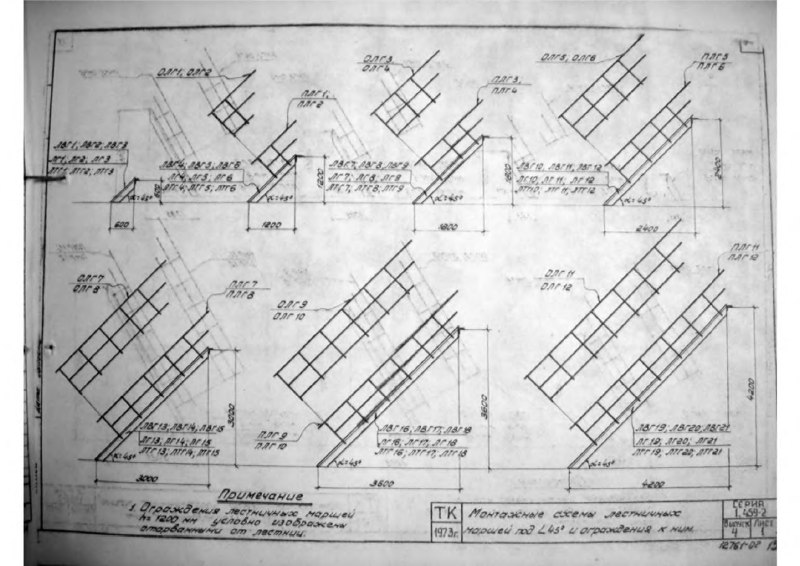 ОЛГ1; ОЛГ2
ПЛГ1;
ПЛГ2
ЛВГ1; ЛВГ2; ЛВГ3
ЛГ1; ЛГ2; ЛГ3
ЛТГ1; ЛТГ2; ЛТГ3
α=45°
600
ЛВГ4; ЛВГ5; ЛВГ6
ЛГ4; ЛГ5; ЛГ6
ЛТГ4; ЛТГ5; ЛТГ6
α=45°
1200
1200
ОЛГ3
ОЛГ4
ПЛГ3;
ПЛГ4
ЛВГ7; ЛВГ8; ЛВГ9
ЛГ7; ЛГ8; ЛГ9
ЛТГ7; ЛТГ8; ЛТГ9
α=45°
1800
1800
ОЛГ5; ОЛГ6
ПЛГ5
ПЛГ6
ЛВГ10; ЛВГ11; ЛВГ12
ЛГ10; ЛГ11; ЛГ12
ЛТГ10; ЛТГ11; ЛТГ12
α=45°
2400
2400
ОЛГ7
ОЛГ8
ПЛГ7
ПЛГ8
ЛВГ13; ЛВГ14; ЛВГ15
ЛГ13; ЛГ14; ЛГ15
ЛТГ13; ЛТГ14; ЛТГ15
α=45°
3000
3000
ОЛГ9
ОЛГ10
ПЛГ9
ПЛГ10
ЛВГ16; ЛВГ17; ЛВГ18
ЛГ16; ЛГ17; ЛГ18
ЛТГ16; ЛТГ17; ЛТГ18
α=45°
3600
3600
ОЛГ11
ОЛГ12
ПЛГ11
ПЛГ12
ЛВГ19; ЛВГ20; ЛВГ21
ЛГ19; ЛГ20; ЛГ21
ЛТГ19; ЛТГ20; ЛТГ21
α=45°
4200
4200
Примечание
1. Ограждения лестничных маршей
h=1200 мм условно изображены
оторванными от лестниц.
ТК
1973г.
Монтажные схемы лестничных
маршей под ∠45° и ограждения к ним.
СЕРИЯ
1.459-2
Выпуск Лист
4 1
12761-07 13